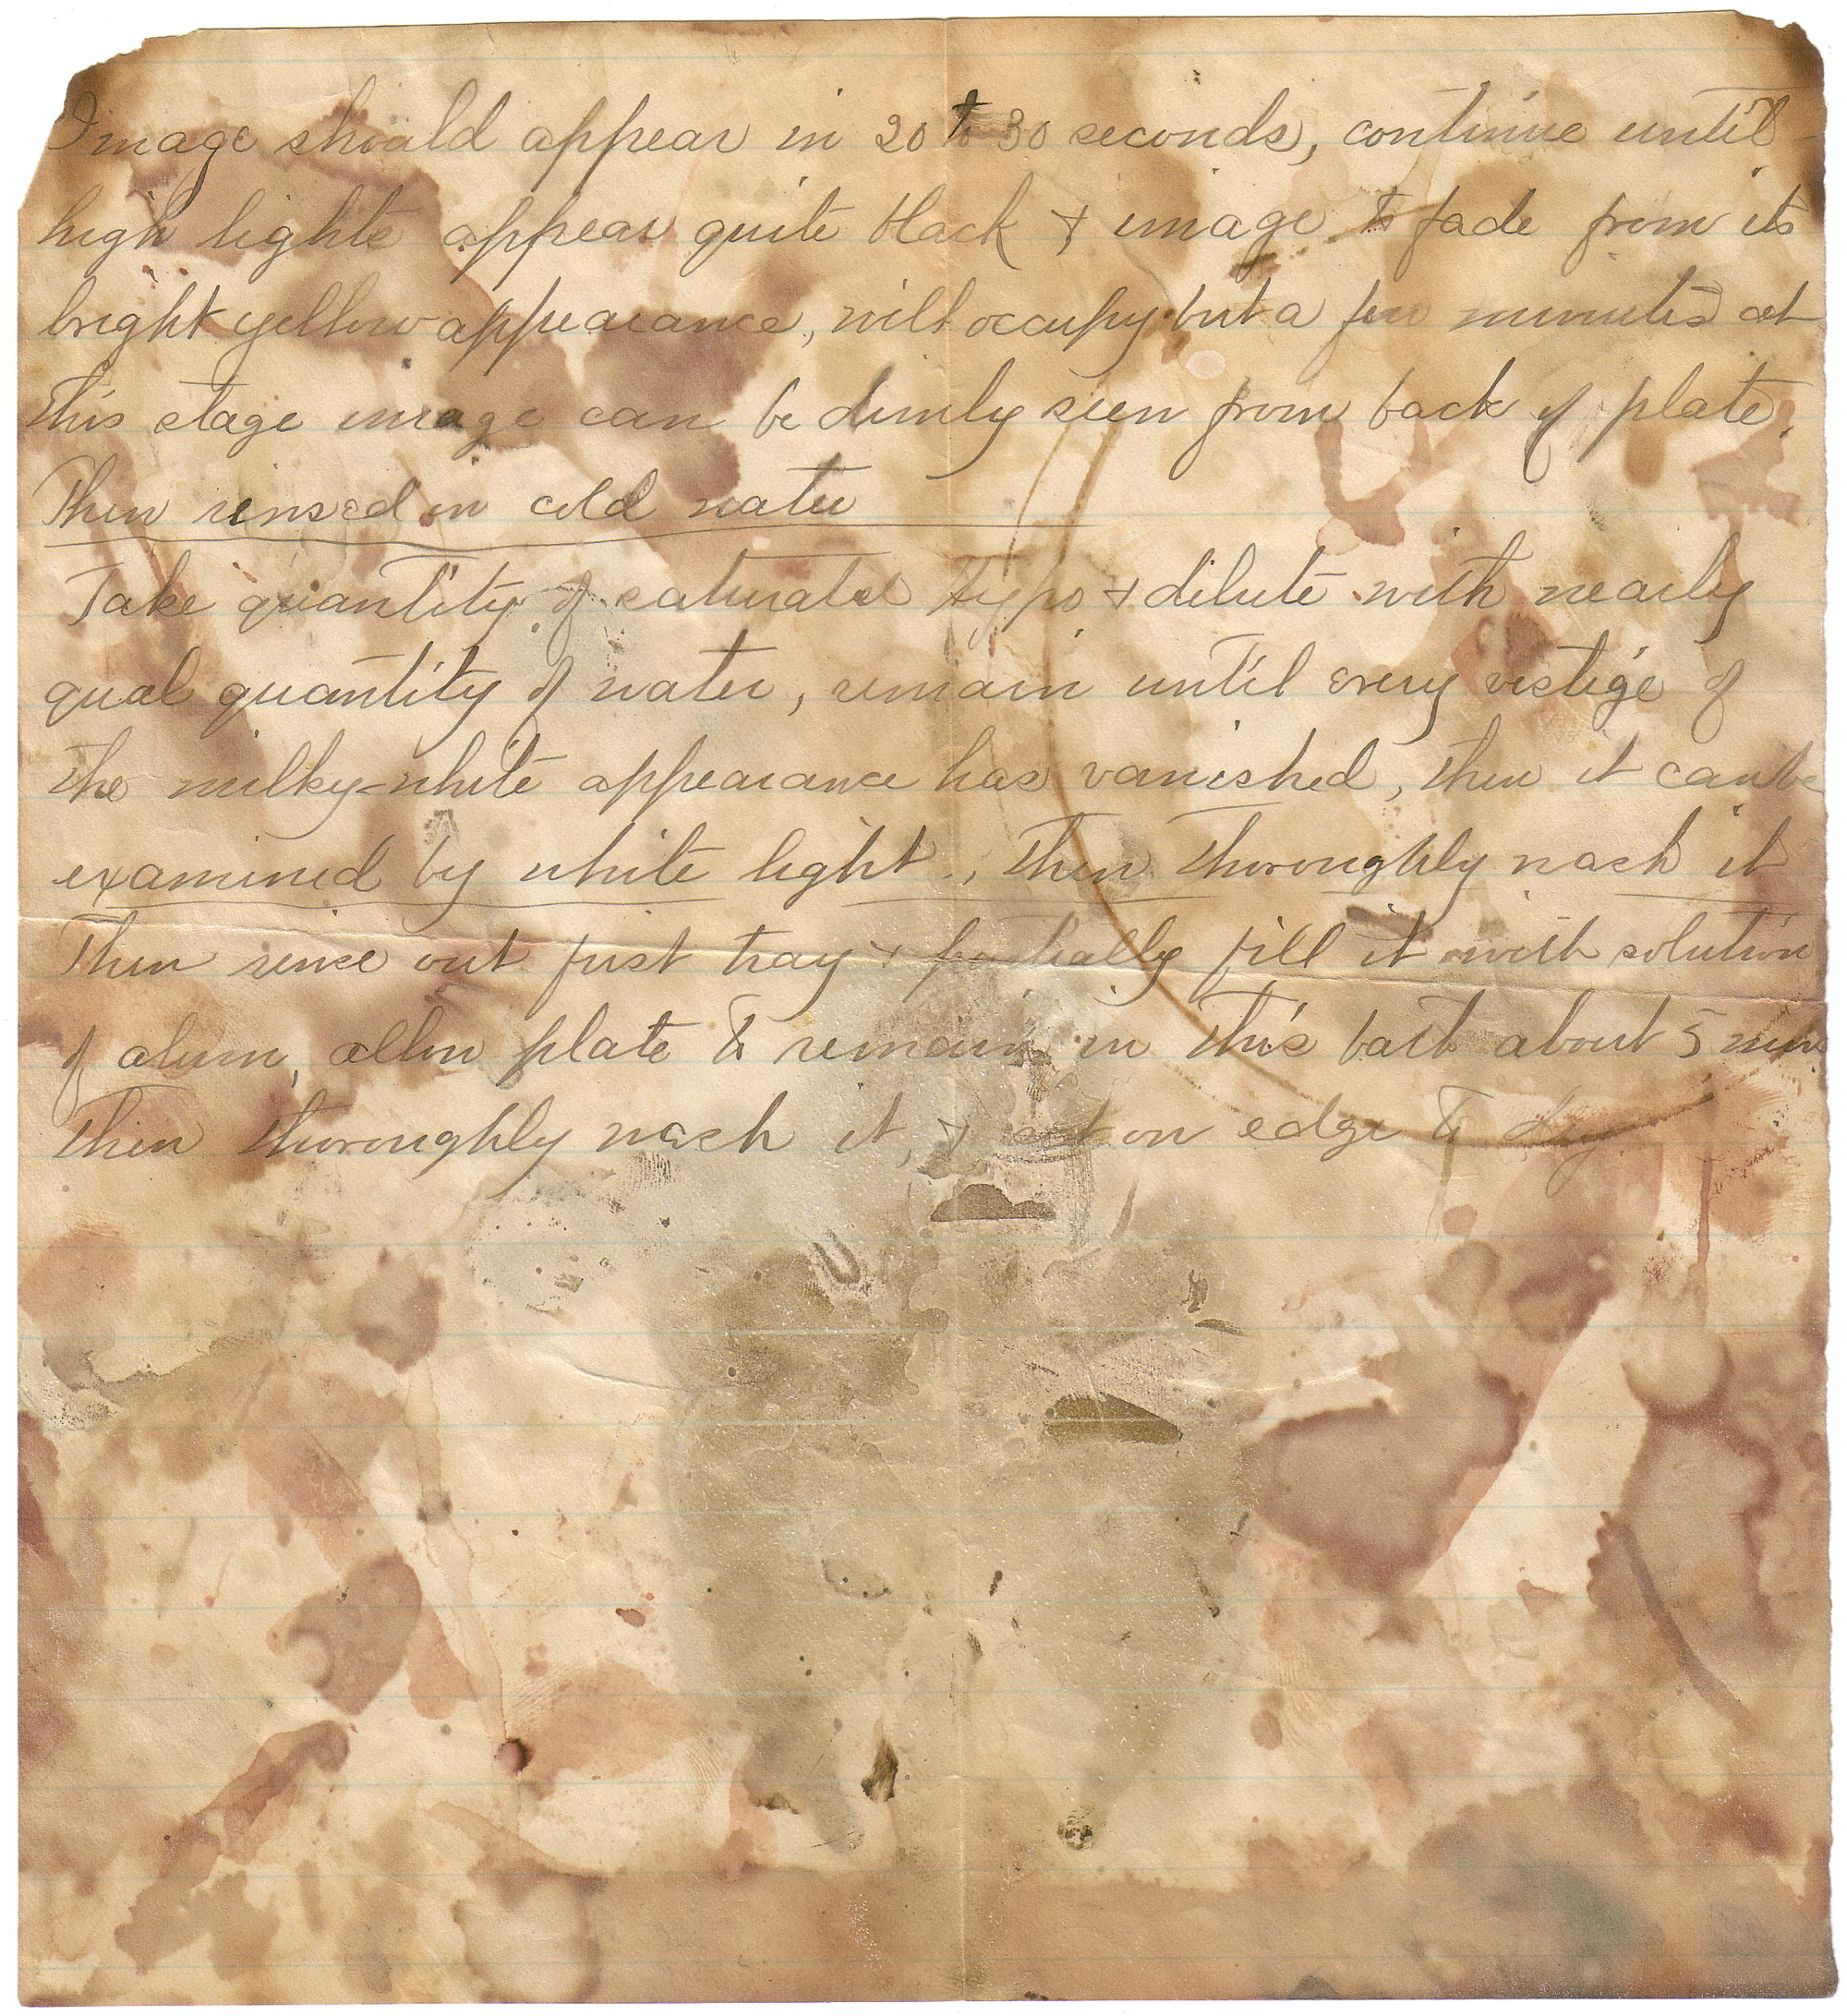 Image should appear in 20 to 30 seconds, continue until
high lights appear quite black & image to fade from its
bright yellow appearance, will occupy but a few minutes at
this stage image can be dimly seen from back of plate.
Then rinsed in cold water
Take quantity of saturated Hypo & dilute with nearly
qual quantity of water, remain until every vestige of
the milky-white appearance has vanished, then it can be
examined by white light, then thoroughly wash it
Then rince out first tray & partially fill it with solution
of alum, allow plate to remain in this bath about 5 min
then thoroughly wash it, & set on edge to dry